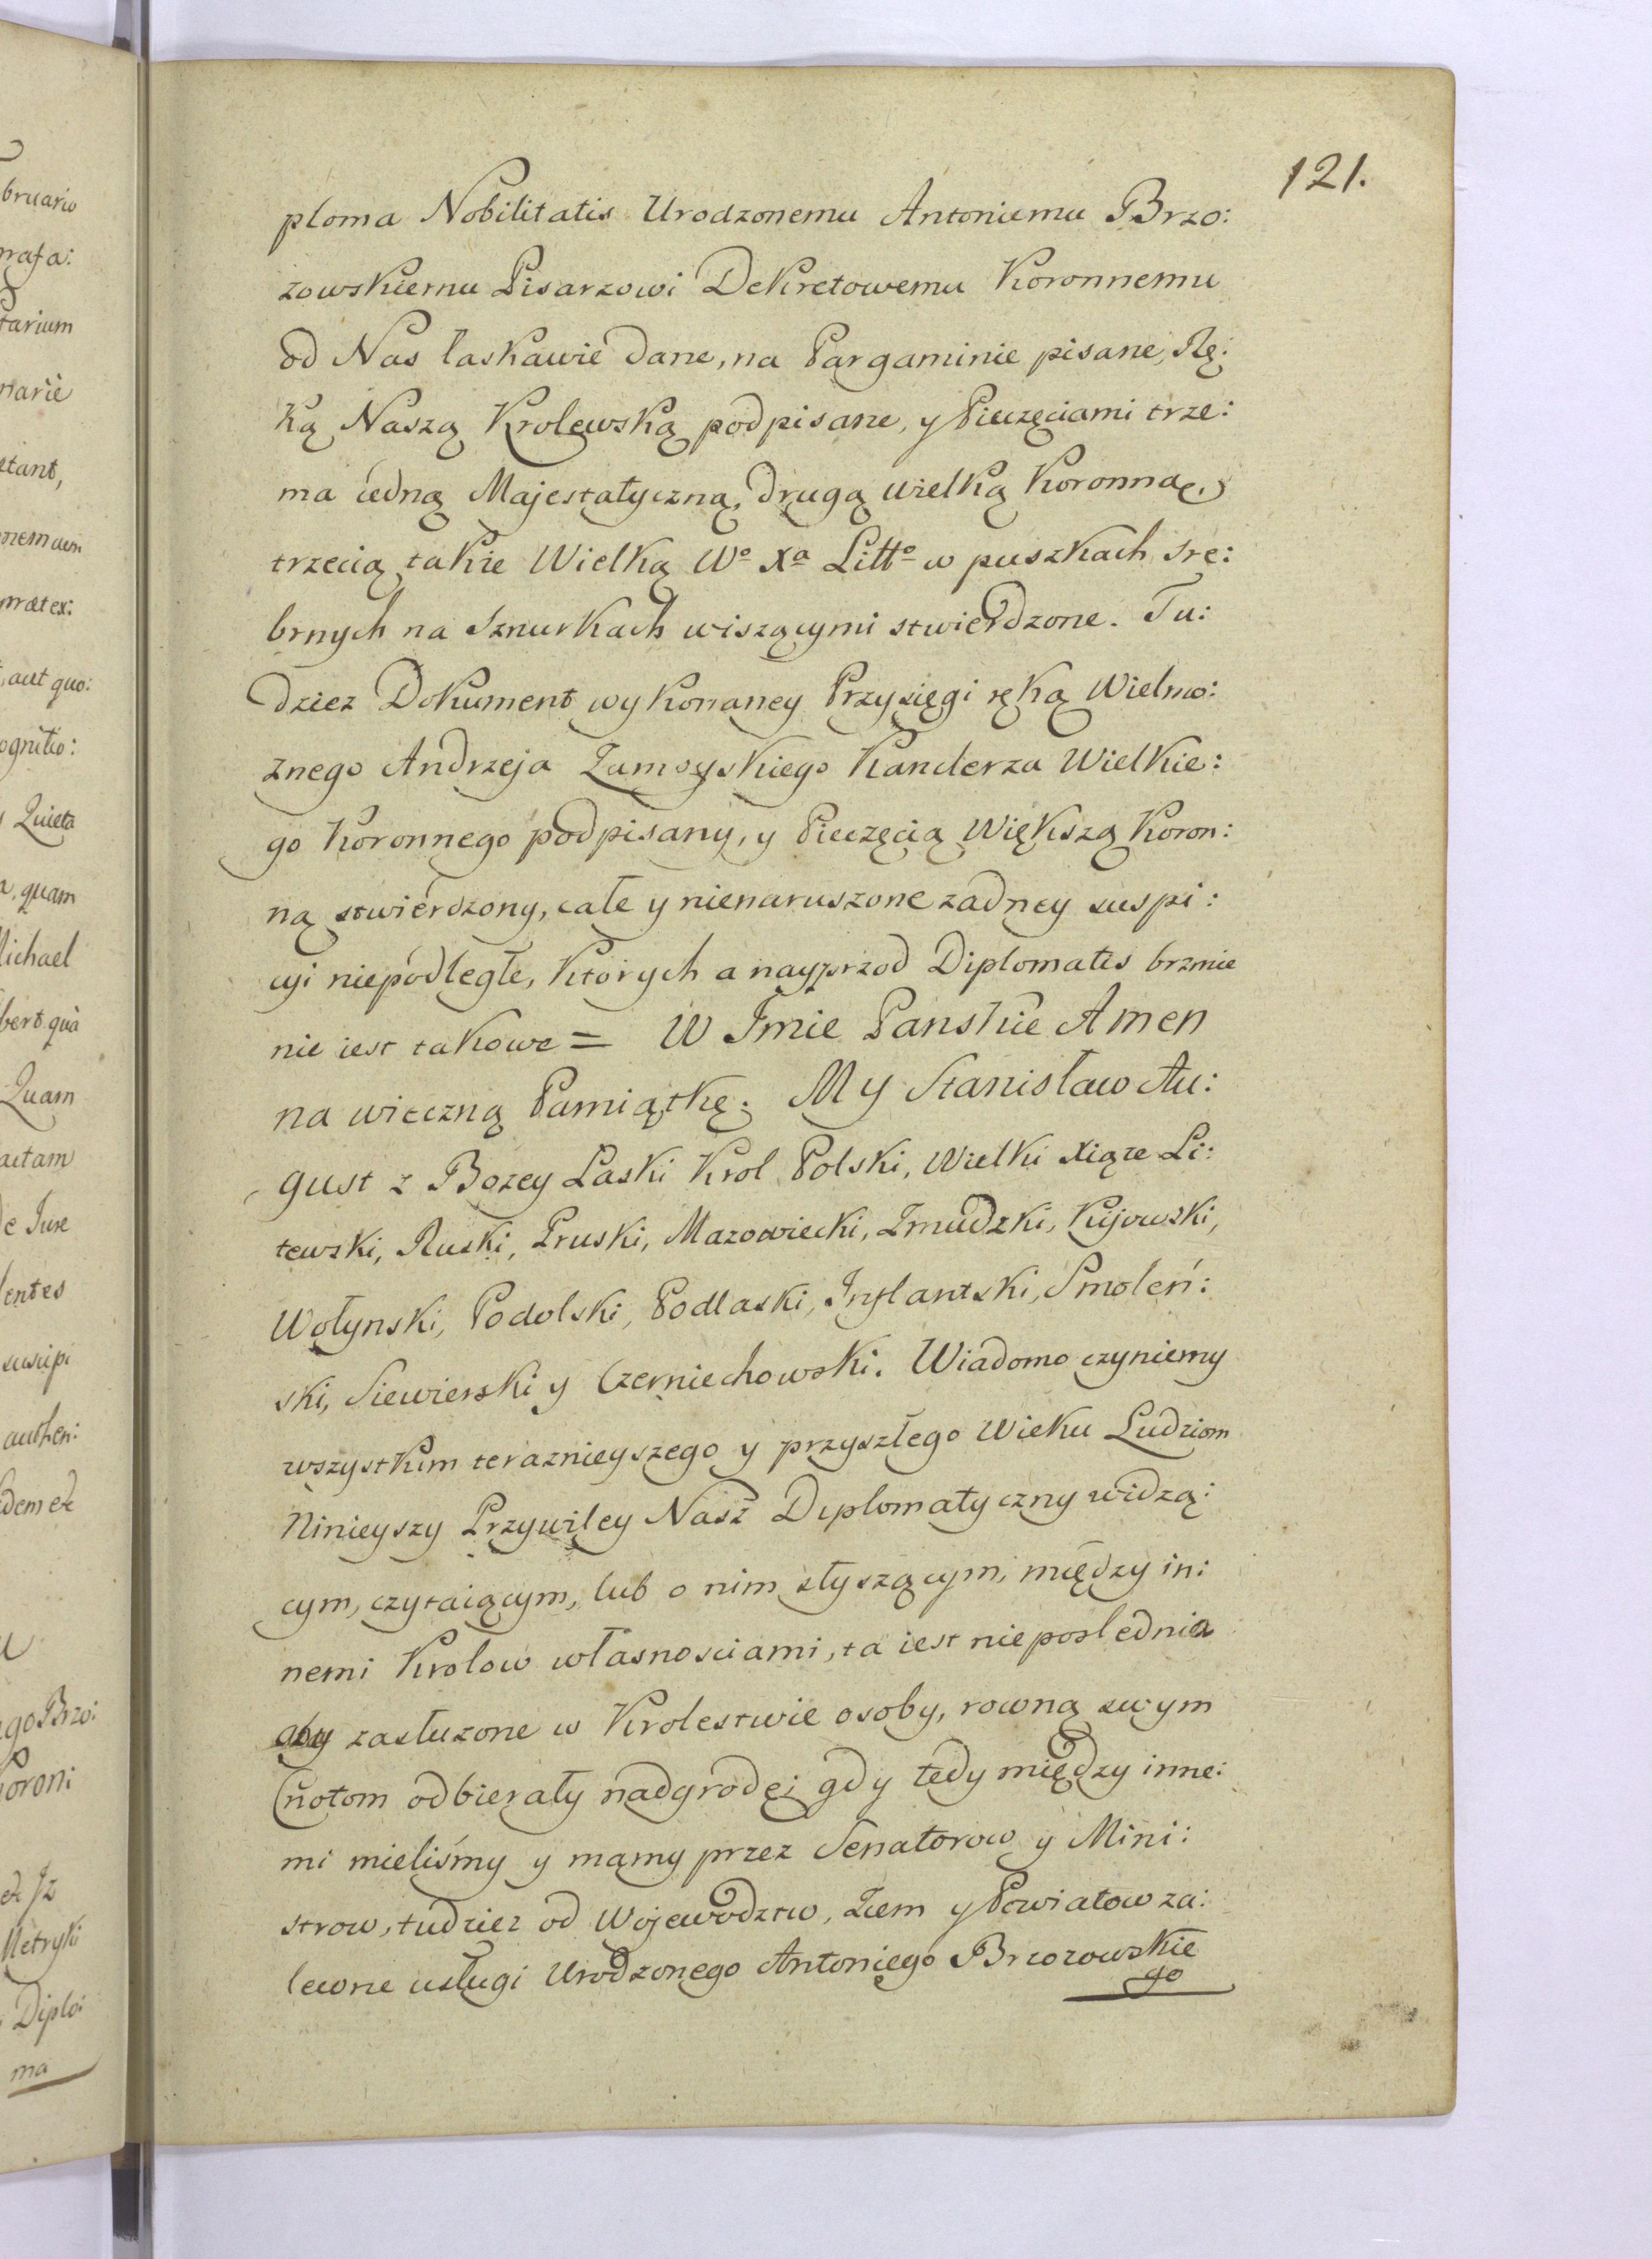 121.
ploma Nobilitatis Urodzonemu Antoniemu Brzo:
zowskiemu Pisarzowi Dekretowemu Koronnemu
od Nas łaskawie dane, na Pargaminie pisane, Rę:
ką Naszą Krolewską podpisane, y Pieczęciami trze:
ma iedną Majestatyczną, drugą wielką Koronną,
trzecią takie Wielką Wº Xª Littº w puszkach sre:
brnych na Sznurkach wiszącymi stwierdzone. Tu:
dziez Dokument wykonaney Przysięgi ręką Wielmo:
znego Andrzeja Zamoyskiego Kanclerza Wielkie:
go Koronnego podpisany, y Pieczęcią Większą Koron:
ną stwierdzony, całe y nienaruszone zadney suspi:
cyi niepodległe, Których a nayprzod Diplomatis brzmie
nie iest takowe = W Imie Panskie Amen
na wieczną Pamiątkę. My Stanisław Au:
gust z Bozey Łaski Krol Polski, Wielki Xiąze Li:
tewski, Ruski, Pruski, Mazowiecki, Zmudzki, Kijowski,
Wołynski, Podolski, Podlaski, Inflantski, Smoleń:
ski, Siewierski y Czerniechowski. Wiadomo czyniemy
wszystkim teraznieyszego y przyszłego Wieku Ludziom
Ninieyszy Przywiley Nasz Diplomatyczny widzą:
cym, czytaiącym, lub o nim słyszącym, między in:
nemi Krolow własnosciami, ta iest nieposlednia
aby zasłuzone w Krolestwie osoby, rowną swym
Cnotom odbierały nadgrodę; gdy tedy między inne:
mi mieliśmy y mamy przez Senatorow y Mini:
strow, tudziez od Wojewodztw, Ziem y Powiatow za:
lecone usługi Urodzonego Antoniego Brzozowskie
go
bruario
grafa:
tarium
narie
etant,
praetex:
aut quo:
ognitio:
Quieta
quam
Michael
Quam
actam
de Jure
dentes
suscipi
authen:
Brzo:
Koroni
Metryki
Diplo:
ma